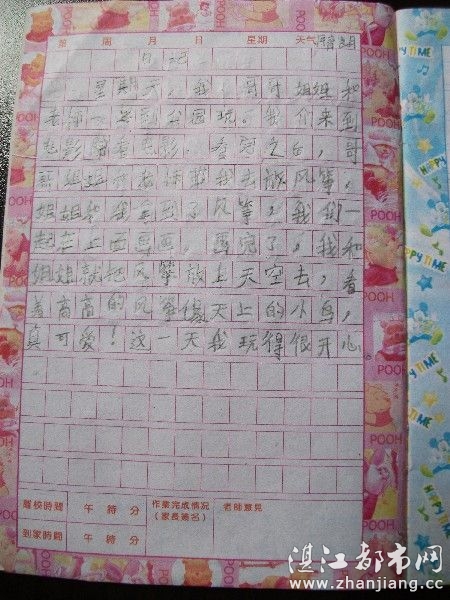 第 周 月 日 星期 天气 晴朗
日记
星期天,我,哥哥,姐姐和
老师一起到公园玩。我们来到
电影院看电影。看完之后,哥
哥姐姐和老师带我去放风筝,
姐姐和我拿到了风筝,我们一
起在上面画画,画完了,我和
姐姐就把风筝放上天空去,看
着高高的风筝像天上的小鸟,
真可爱!这一天我玩得很开心
離校時間 午 時 分 作業完成情況 老師意見
(家長簽名)
到家時間 午 時 分
POOH
HAPPY TIME
湛江都市网
www.zhanjiang.cc